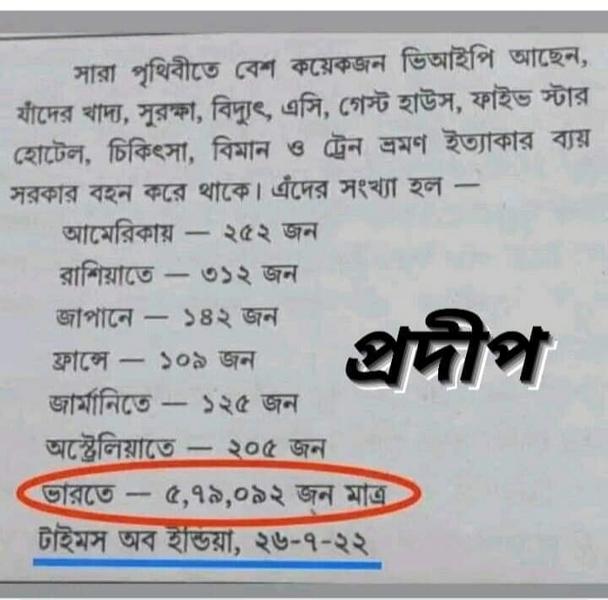 সারা পৃথিবীতে বেশ কয়েকজন ভিআইপি আছেন,
যাঁদের খাদ্য, সুরক্ষা, বিদ্যুৎ, এসি, গেস্ট হাউস, ফাইভ স্টার
হোটেল, চিকিৎসা, বিমান ও ট্রেন ভ্রমণ ইত্যাকার ব্যয়
সরকার বহন করে থাকে। এঁদের সংখ্যা হল —
আমেরিকায় — ২৫২ জন
রাশিয়াতে — ৩১২ জন
জাপানে — ১৪২ জন
ফ্রান্সে — ১০৯ জন
প্রদীপ
জার্মানিতে — ১২৫ জন
অস্ট্রেলিয়াতে — ২০৫ জন
ভারতে — ৫,৭৯,০৯২ জন মাত্র
টাইমস অব ইন্ডিয়া, ২৬-৭-২২